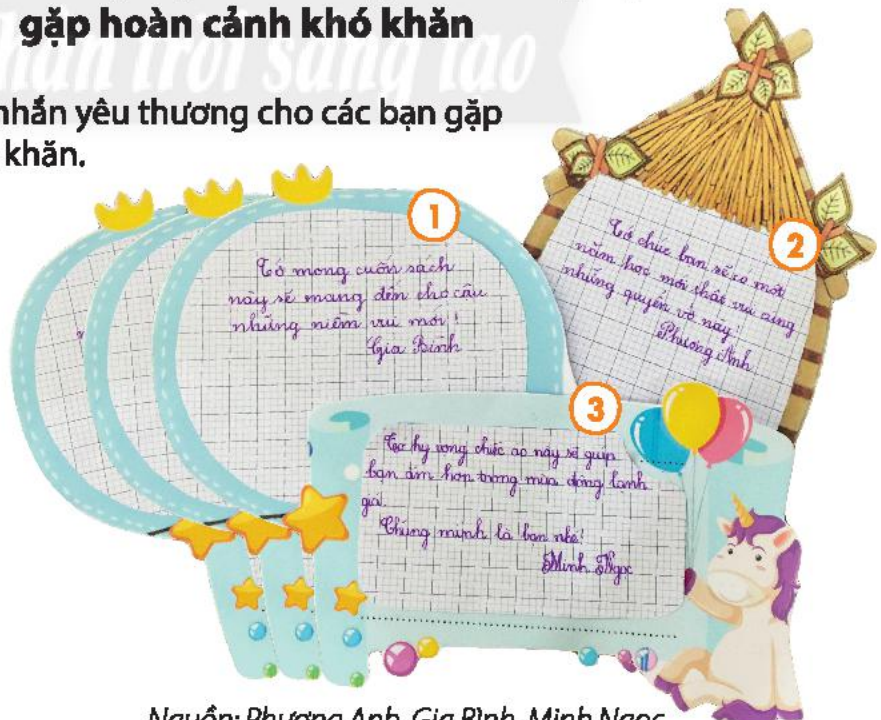 gặp hoàn cảnh khó khăn
chân trời sáng tạo
nhắn yêu thương cho các bạn gặp
khăn.
1
Tớ mong cuốn sách
này sẽ mang đến cho cậu
những niềm vui mới!
Gia Bình
2
Tớ chúc bạn sẽ có một
năm học mới thật vui cùng
những quyển vở này!
Phương Anh
3
Tớ hy vọng chiếc áo này sẽ giúp
bạn ấm hơn trong mùa đông lạnh
giá!
Chúng mình là bạn nhé!
Minh Ngọc
Nguồn: Phương Anh, Gia Bình, Minh Ngọc